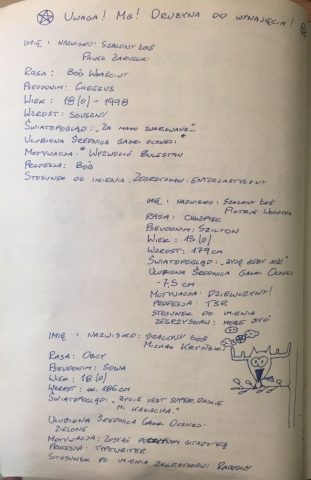 Uwaga! MG! Drużyna do wynajęcia!
Imię i nazwisko: Szalony Łoś
Paweł
Rasa: Bóg Właściwy
Pseudonim: Cheesus
Wiek: 18 (0) - 1998
Wzrost: Słuszny
Światopogląd: „Za mało znarkowane..."
Ulubiona średnica gałki ocznej:
Motywacja: "Wyzwolić Bulestan
Profesja: Bóg
Stosunek do imienia Zegrzysław: Entuzjastyczny
Imię i nazwisko: Szalony Łoś
Piotrus
Rasa: Chłopiec
Pseudonim: Szilton
Wiek: 15 (0)
Wzrost: 179 cm
Światopogląd: „Żyję żeby jeść"
Ulubiona średnica gałki ocznej
- 7,5 cm
Motywacja: Dziewczyny!
Profesja: T3R
Stosunek do imienia
Zegrzysław: Może być
Imię i nazwisko: Szalony Łoś
Michał Kryński
Rasa: Obcy
Pseudonim: Sowa
Wiek: 18 (0)
Wzrost: ok. 186 cm
Światopogląd: „Życie jest super. Dajcie
M. Kałacha."
Ulubiona średnica gałki ocznej:
Zielone
Motywacja: Zostać gitarzystą
Profesja: Typewriter
Stosunek do imienia Zegrzysław: Radosny